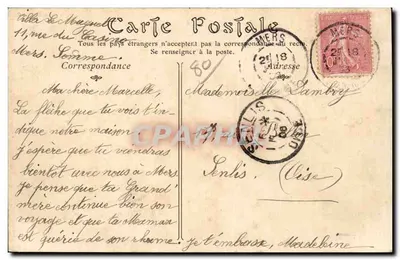 Villa Le Muguet
11, rue du Casino
Mers. Somme
Carte Postale
Tous les pays étrangers n'acceptent pas la correspondance au recto
Se renseigner à la poste.
Correspondance
Adresse
MERS
21 18
MERS
21 18
80
Ma chère Marcelle,
La flèche que tu vois t'in-
dique notre maison
j'espère que tu viendras
bientôt avec nous à Mers
je pense que ta Grand'
mère continue bien son
voyage et que ta Maman
est guérie de son rhume. je t'embrasse, Madeleine
Mademoiselle Lambry
Senlis (Oise)
SENLIS
OISE